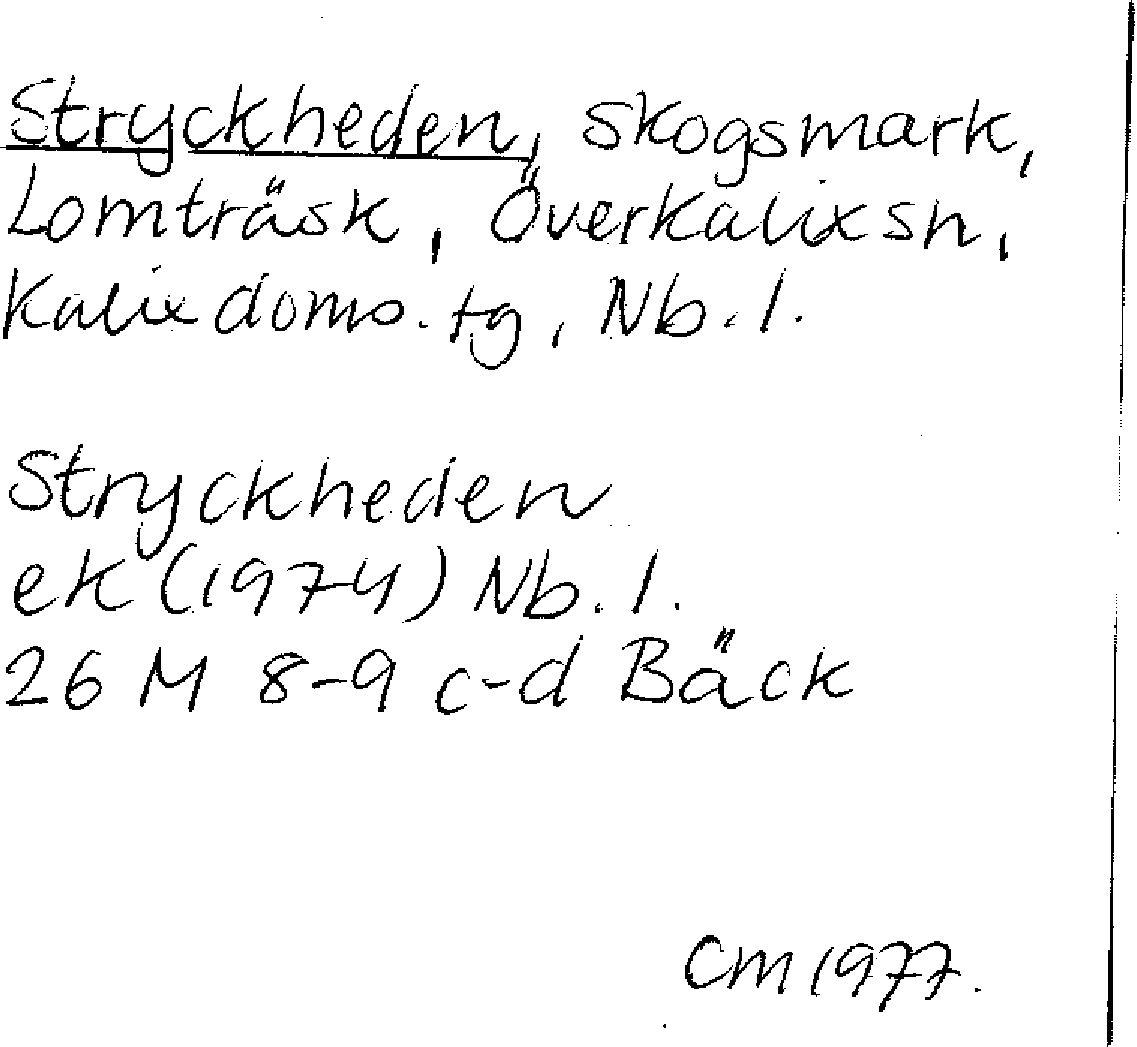 Stryckheden, skogsmark,
Lomträsk, Överkalix sn,
Kalix doms. tg, Nb. l.
Stryckheden
ek (1974) Nb. l.
26 M 8-9 c-d Bäck
CM 1977.